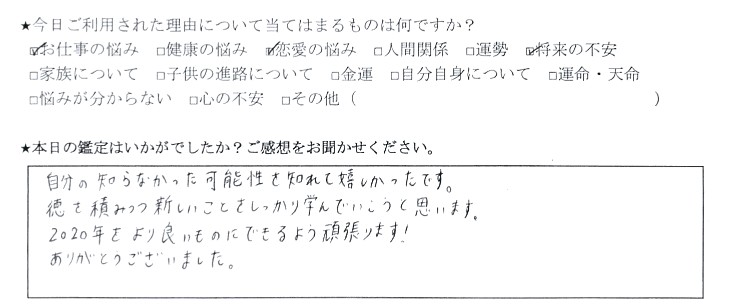 ★今日ご利用された理由について当てはまるものは何ですか？
☑お仕事の悩み □健康の悩み ☑恋愛の悩み □人間関係 □運勢 ☑将来の不安
□家族について □子供の進路について □金運 □自分自身について □運命・天命
□悩みが分からない □心の不安 □その他（ ）
★本日の鑑定はいかがでしたか？ご感想をお聞かせください。
自分の知らなかった可能性を知れて嬉しかったです。
徳を積みつつ新しいことをしっかり学んでいこうと思います。
2020年をより良いものにできるよう頑張ります!
ありがとうございました。